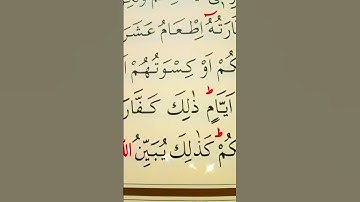 اِطْعَامُ عَشَرَ
كُمْ اَوْ كِسْوَتُهُمْ
اَيَّامٍ ذٰلِكَ كَفَّارَ
كُمْ كَذٰلِكَ يُبَيِّنُ اللّٰ